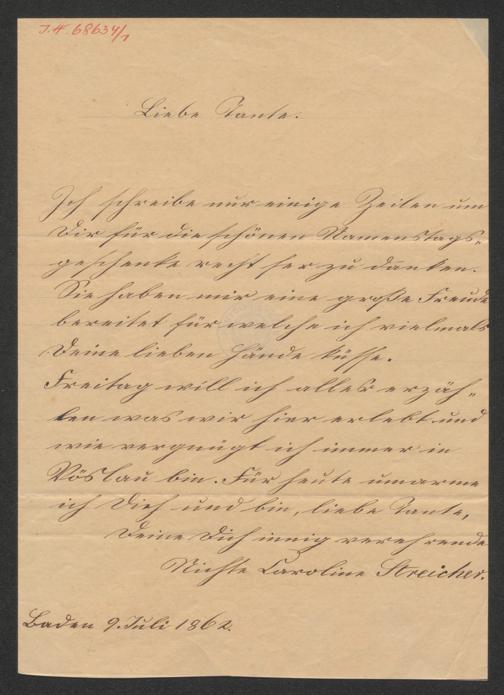 J.N. 68634/1
Liebe Tante.
Ich schreibe nur einige Zeilen um
Dir für die schönen Namenstags-
geschenke recht ser zu danken.
Sie haben mir eine große Freude
bereitet für welche ich vielmals
Deine lieben Hände küsse.
Freitag will ich alles erzäh-
len was wir hier erlebt und
wie vergnügt ich immer in
Vöslau bin. Für heute umarme
ich Dich und bin, liebe Tante,
Deine Dich innig verehrende
Nichte Caroline Streicher.
Baden 9. Juli 1862.